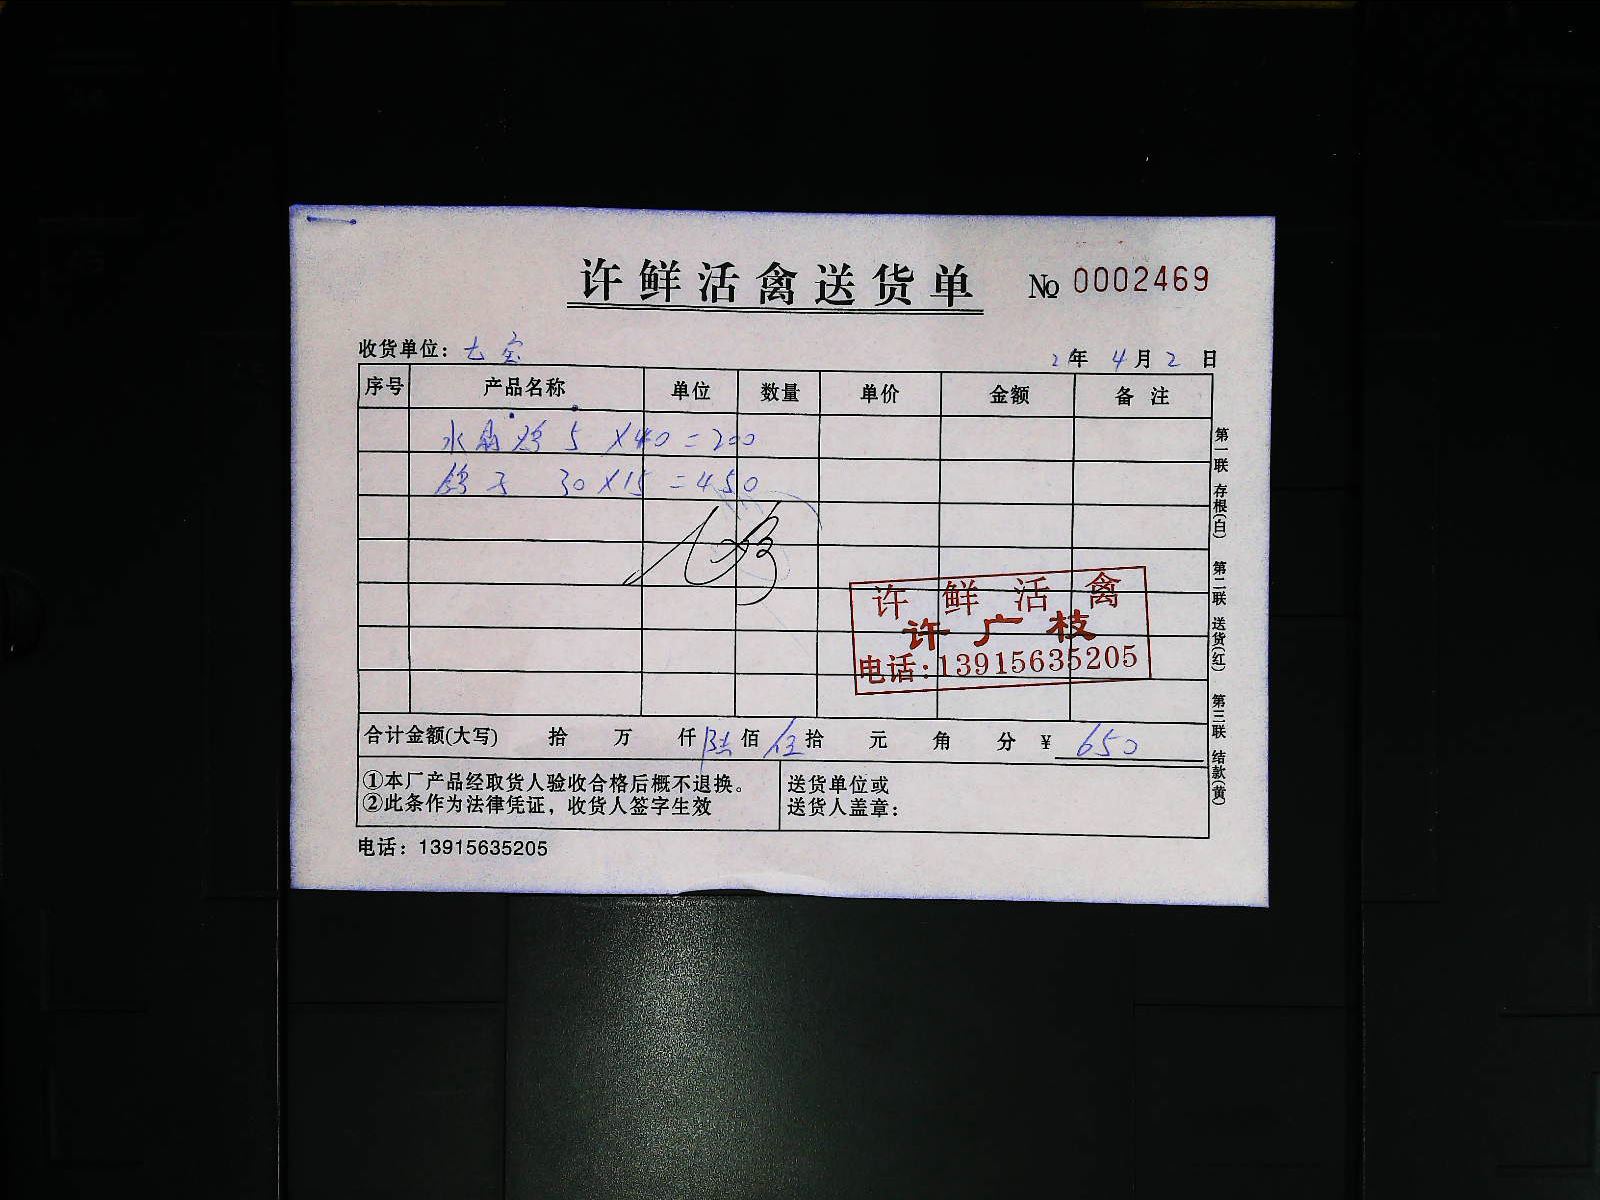 许鲜活禽送货单 № 0002469
收货单位： 2年 4月 2日
序号 产品名称 单位 数量 单价 金额 备注
水 鸡 5 ×40=200
鸽子 30×15=450
许鲜活禽
许广枝
电话:13915635205
合计金额(大写) 拾 万 仟 陆佰 伍拾 元 角 分 ¥ 650
①本厂产品经取货人验收合格后概不退换。
②此条作为法律凭证，收货人签字生效
送货单位或
送货人盖章：
电话：13915635205
第一联 存根(白) 第二联 送货(红) 第三联 结款(黄)